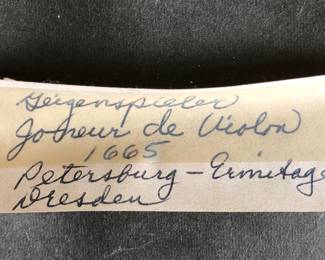 Geigenspieler
Joueur de Violon
1665
Petersburg – Ermitage
Dresden